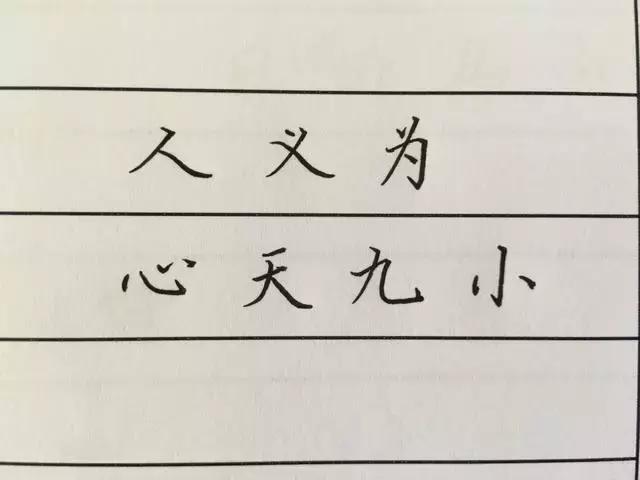 人义为
心天九小